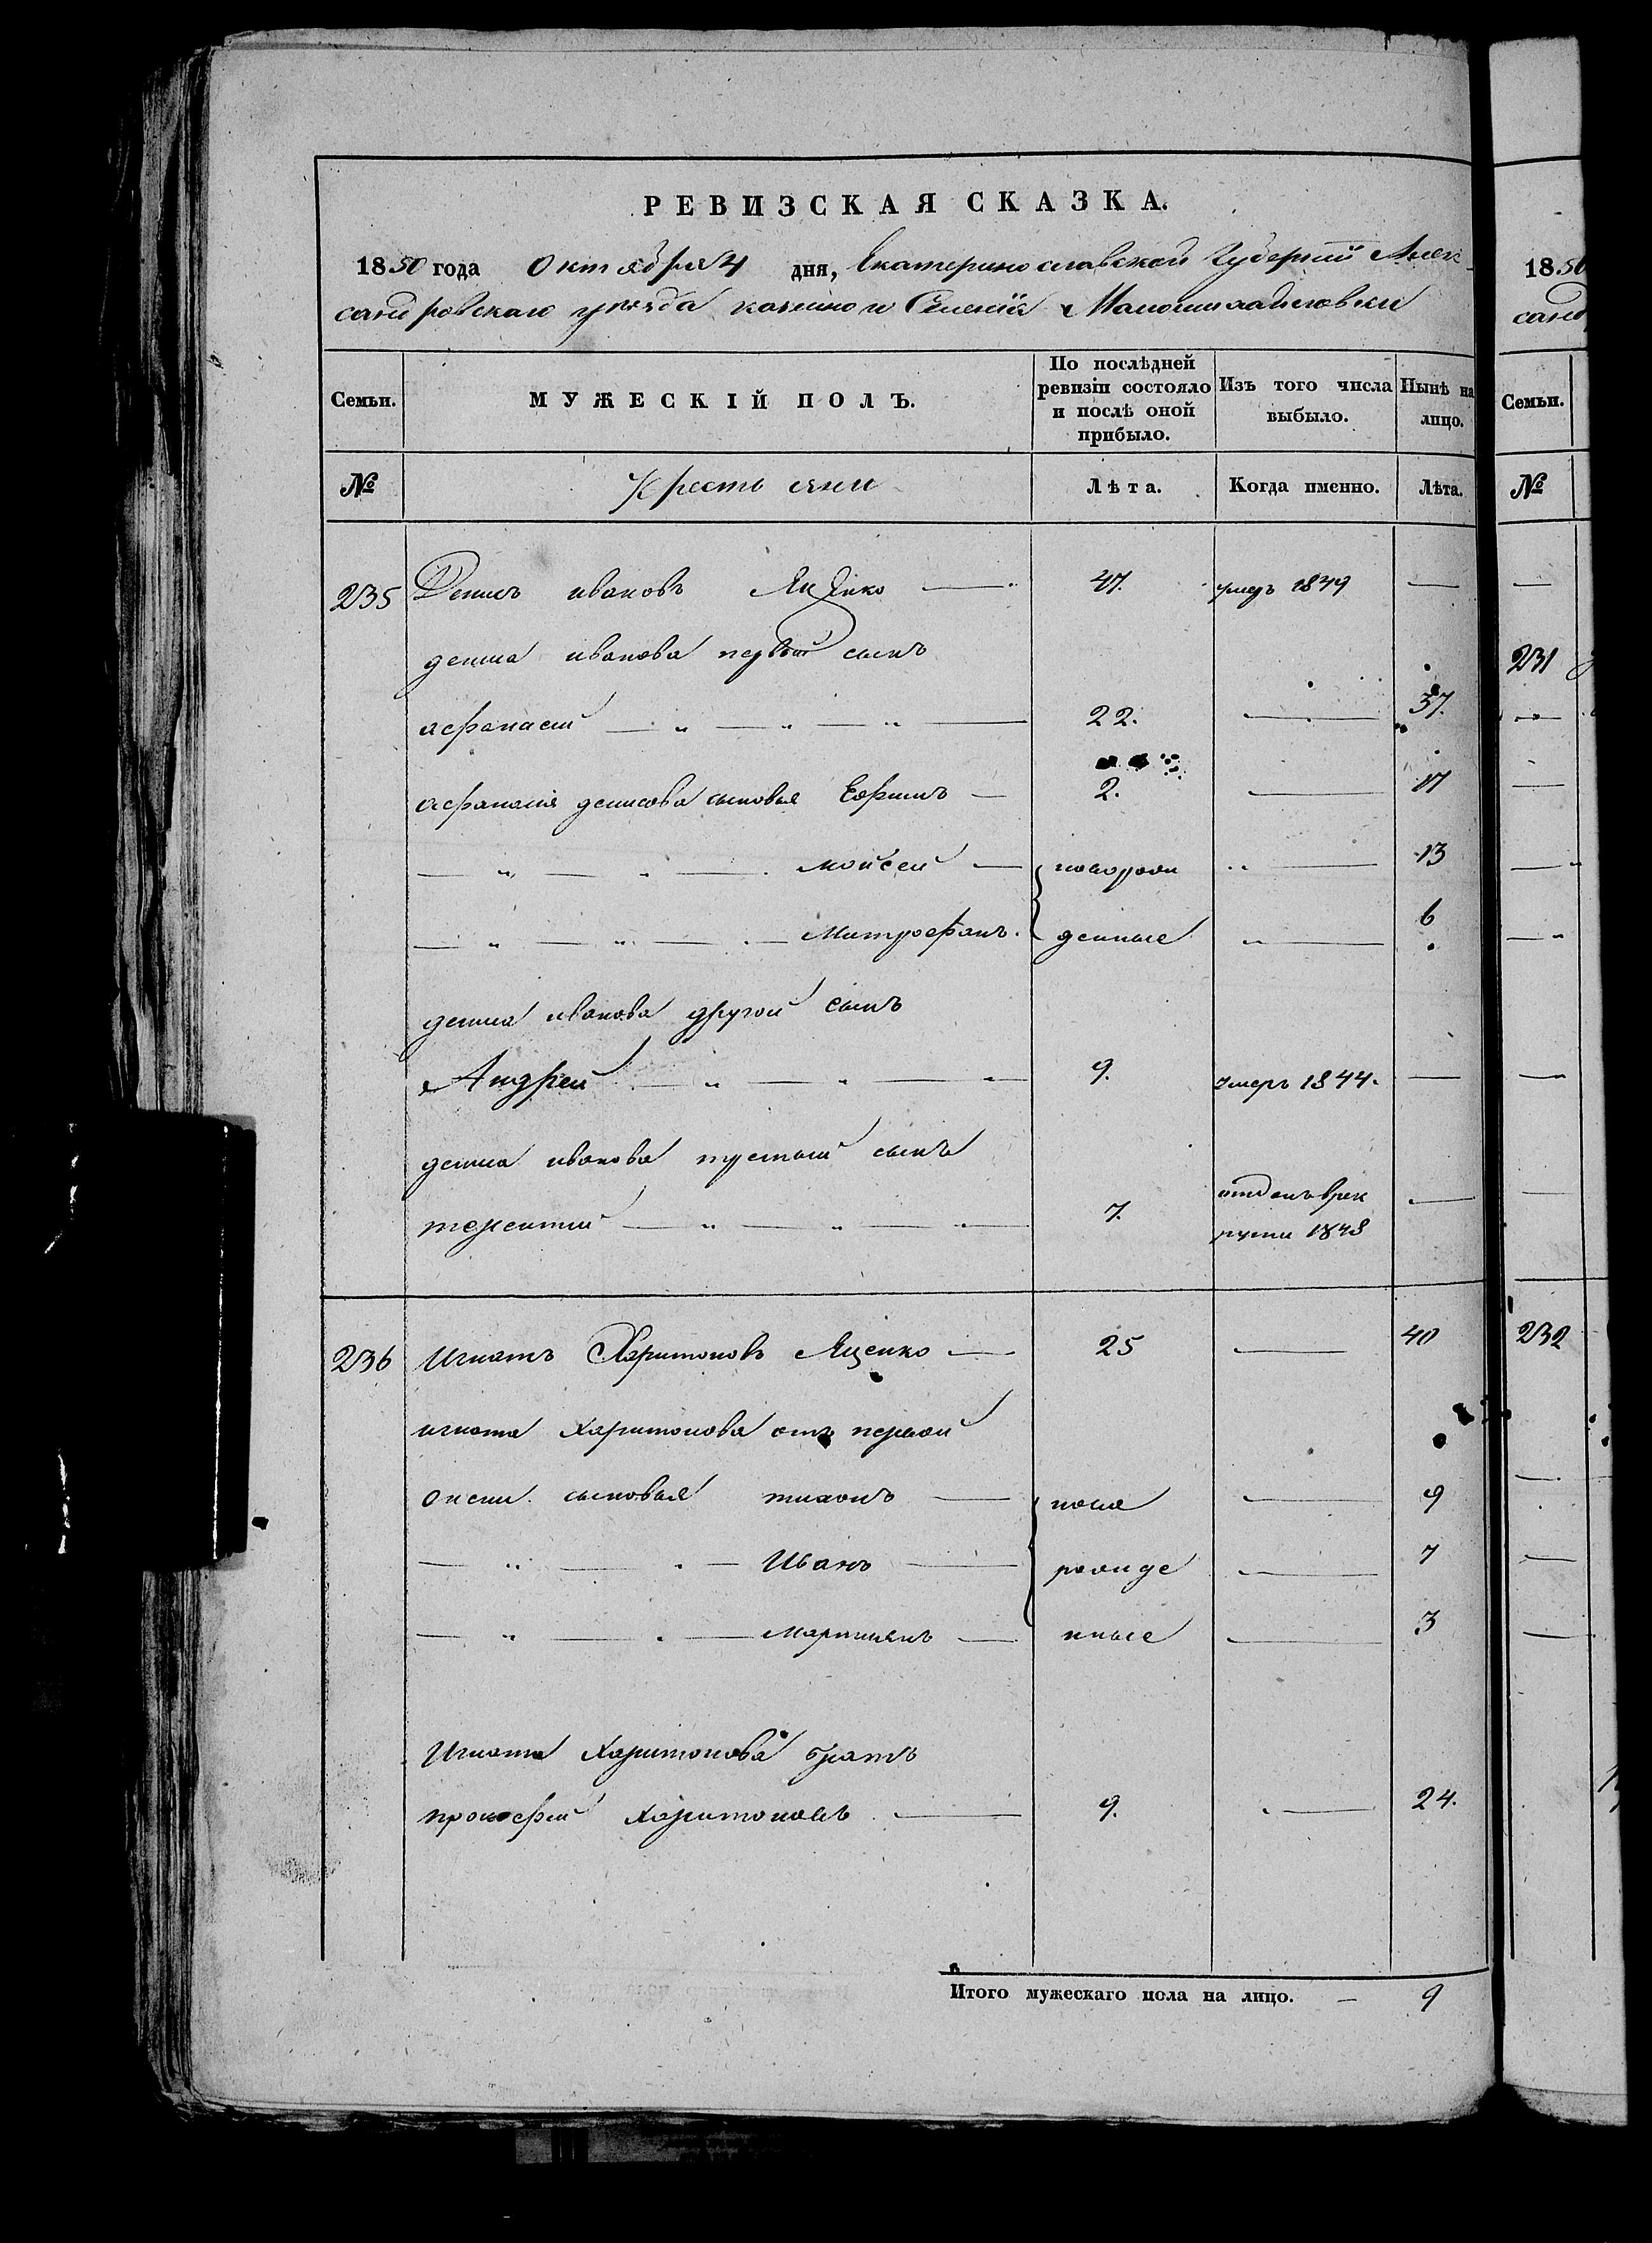 РЕВИЗСКАЯ СКАЗКА.
1850 года Октября 4 дня, Екатеринославской Губернии Алек-
сандровскаго уѣзда казенно и Селенія Маломихайловки
Семьи. МУЖЕСКІЙ ПОЛЪ. По послѣдней ревизіи состояло и послѣ оной прибыло. Изъ того числа выбыло. Нынѣ на лицо.
№ Крестьяни Лѣта. Когда именно. Лѣта.
235 Денисъ ивановъ Яценко 47. умеръ 1849
дениса иванова первый сынъ
афанасий 22. 37.
афанасия денисова сыновья Ефимъ 2. 17
мойсей новорож 13
Митрофанъ. денные 6
дениса иванова другой сынъ
Андрей 9. умеръ 1844.
дениса иванова третий сынъ
терентий 7. отданъ врек
рути 1848
236 Игнатъ Харитоновъ Яценко 25 40
игната Харитонова отъ первой
сыновья тихонъ 9
Иванъ рожде 7
Мартинянъ нные 3
Игната Харитонова братъ
прокофий Харитоновъ 9. 24.
Итого мужескаго пола на лицо. — 9
1850
санд
Семьи.
№
231
232